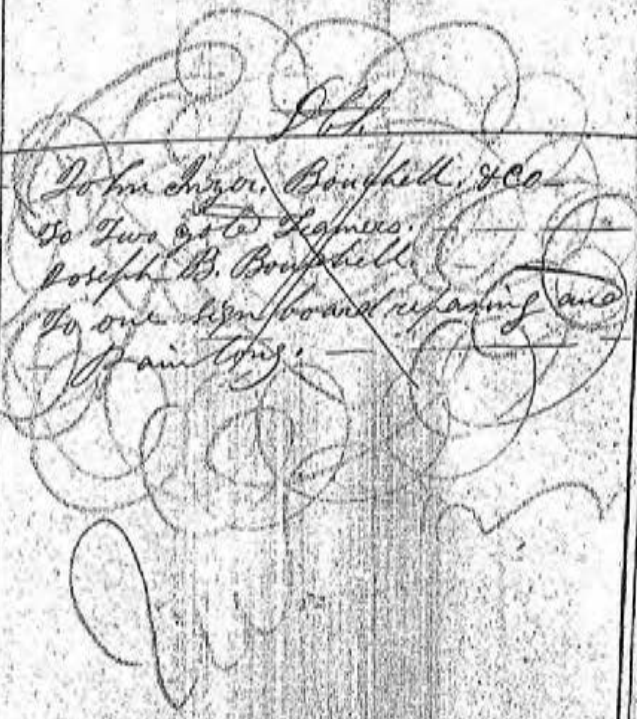 John Inzer. Boushell, & Co
To Two
Joseph B. Boushell
To one sign board reparing and
Painting.